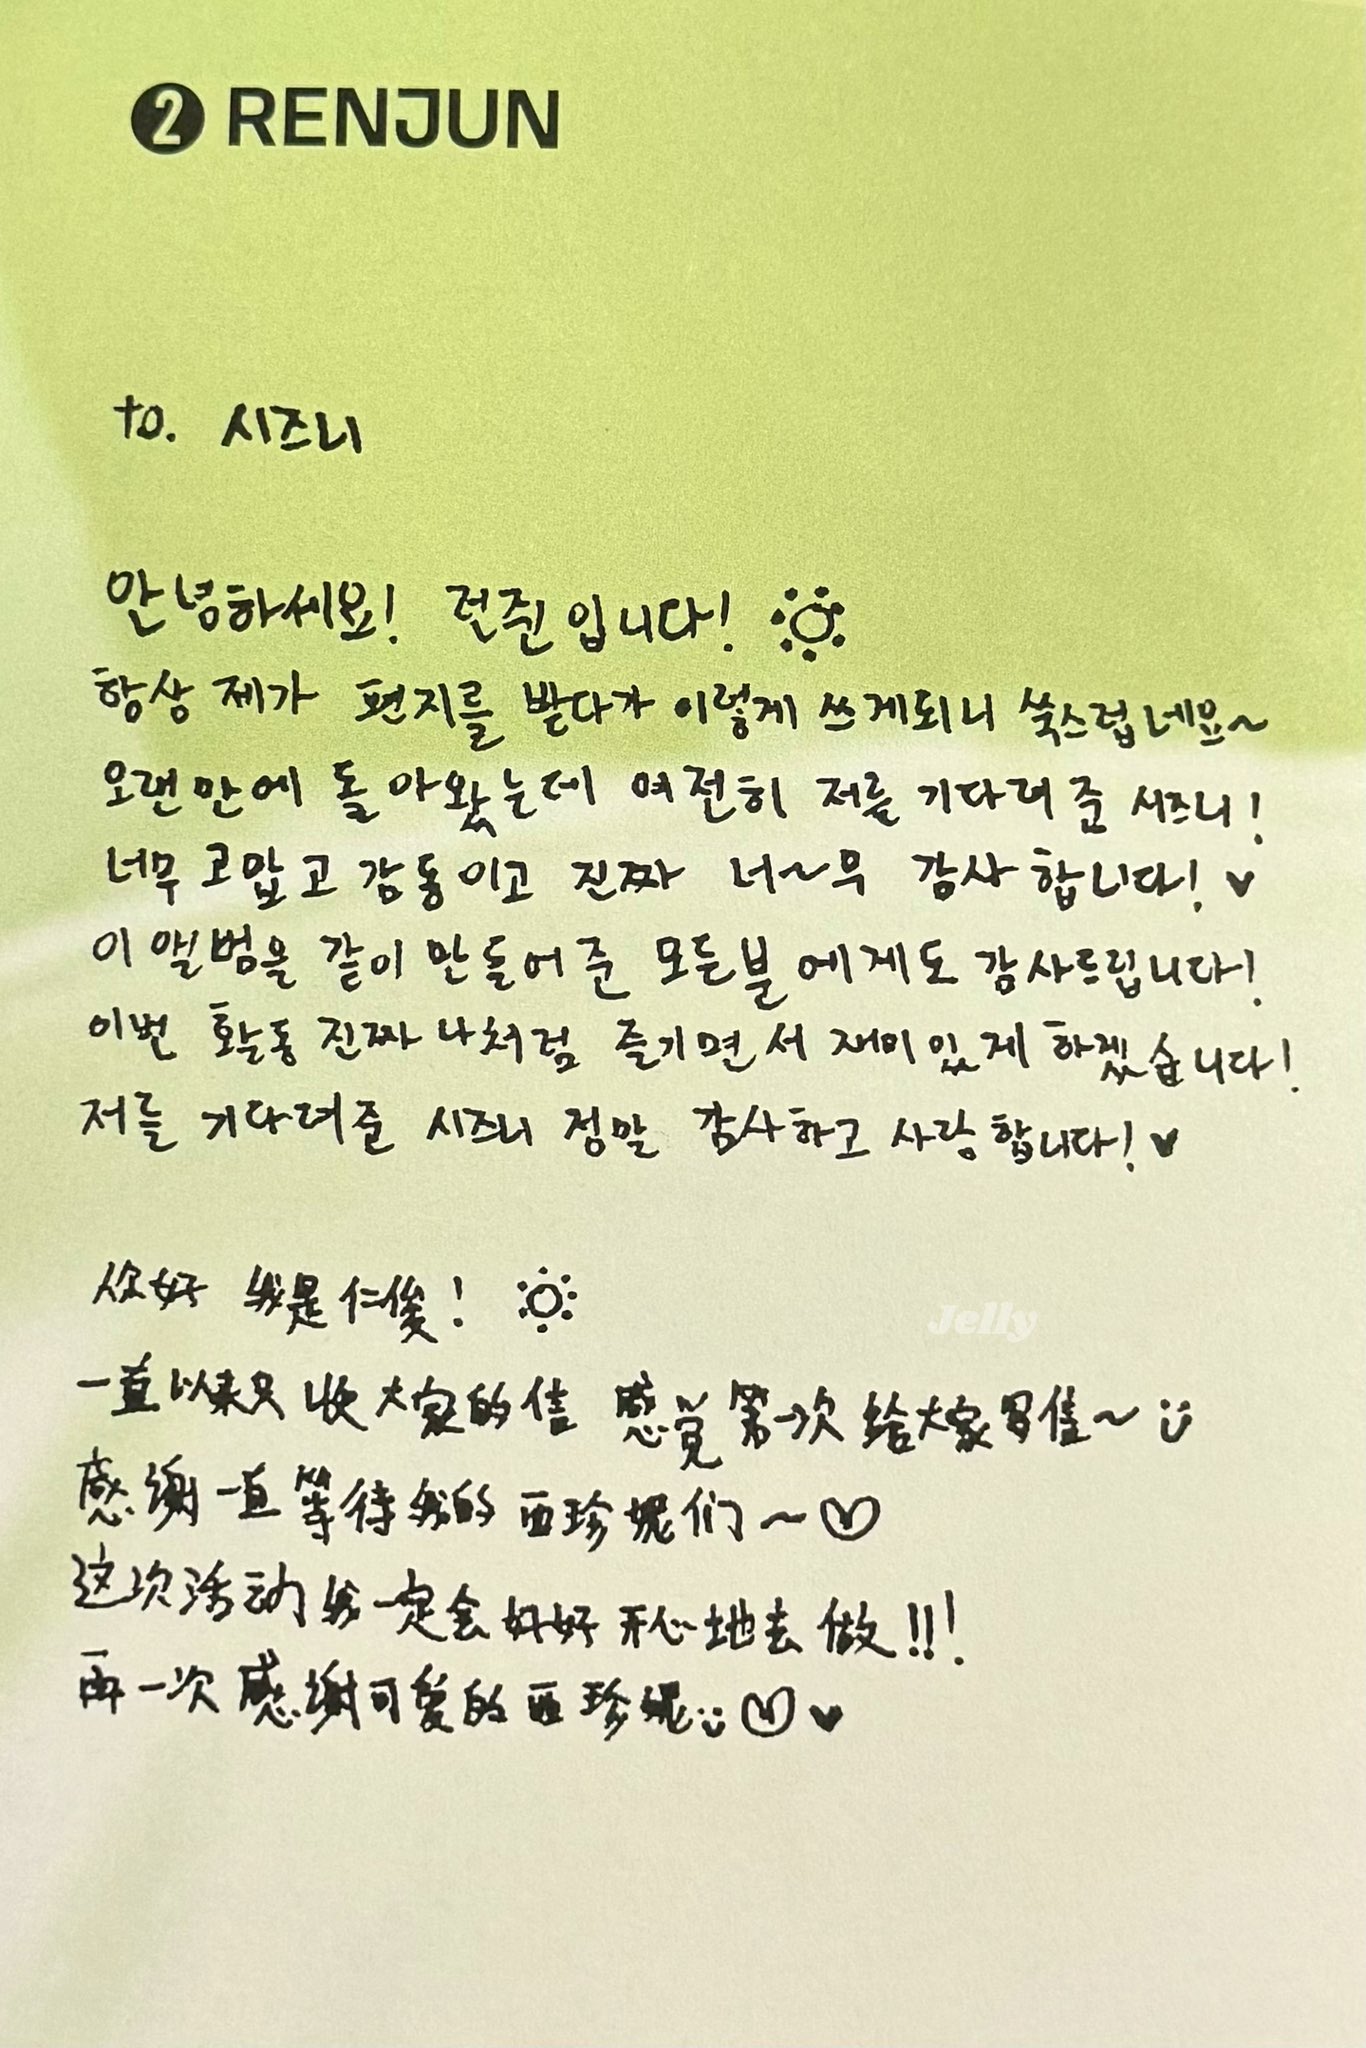 2 RENJUN
to. 시즈니
안녕하세요! 런쥔입니다!
항상 제가 편지를 받다가 이렇게 쓰게되니 쑥스럽네요~
오랜만에 돌아왔는데 여전히 저를 기다려준 시즈니!
너무 고맙고 감동이고 진짜 너~무 감사합니다! ♥
이 앨범을 같이 만들어준 모든분에게도 감사드립니다!
이번 활동 진짜 나처럼 즐기면서 재미있게 하겠습니다!
저를 기다려준 시즈니 정말 감사하고 사랑합니다! ♥
你好 我是仁俊!
Jelly
一直以来只收大家的信 感觉第一次给大家写信~
感谢一直等待我的西珍妮们~♡
这次活动我一定会好好开心地去做!!!
再一次感谢可爱的西珍妮♡♥